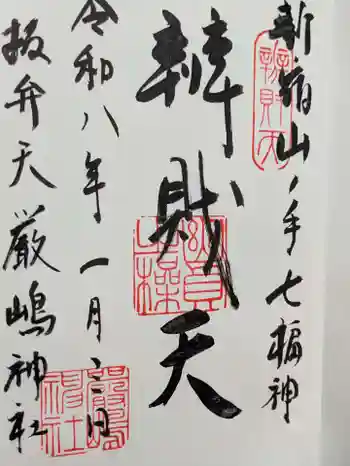 新宿山ノ手七福神
辨財天
辨財天
令和八年一月二日
抜弁天厳嶋神社